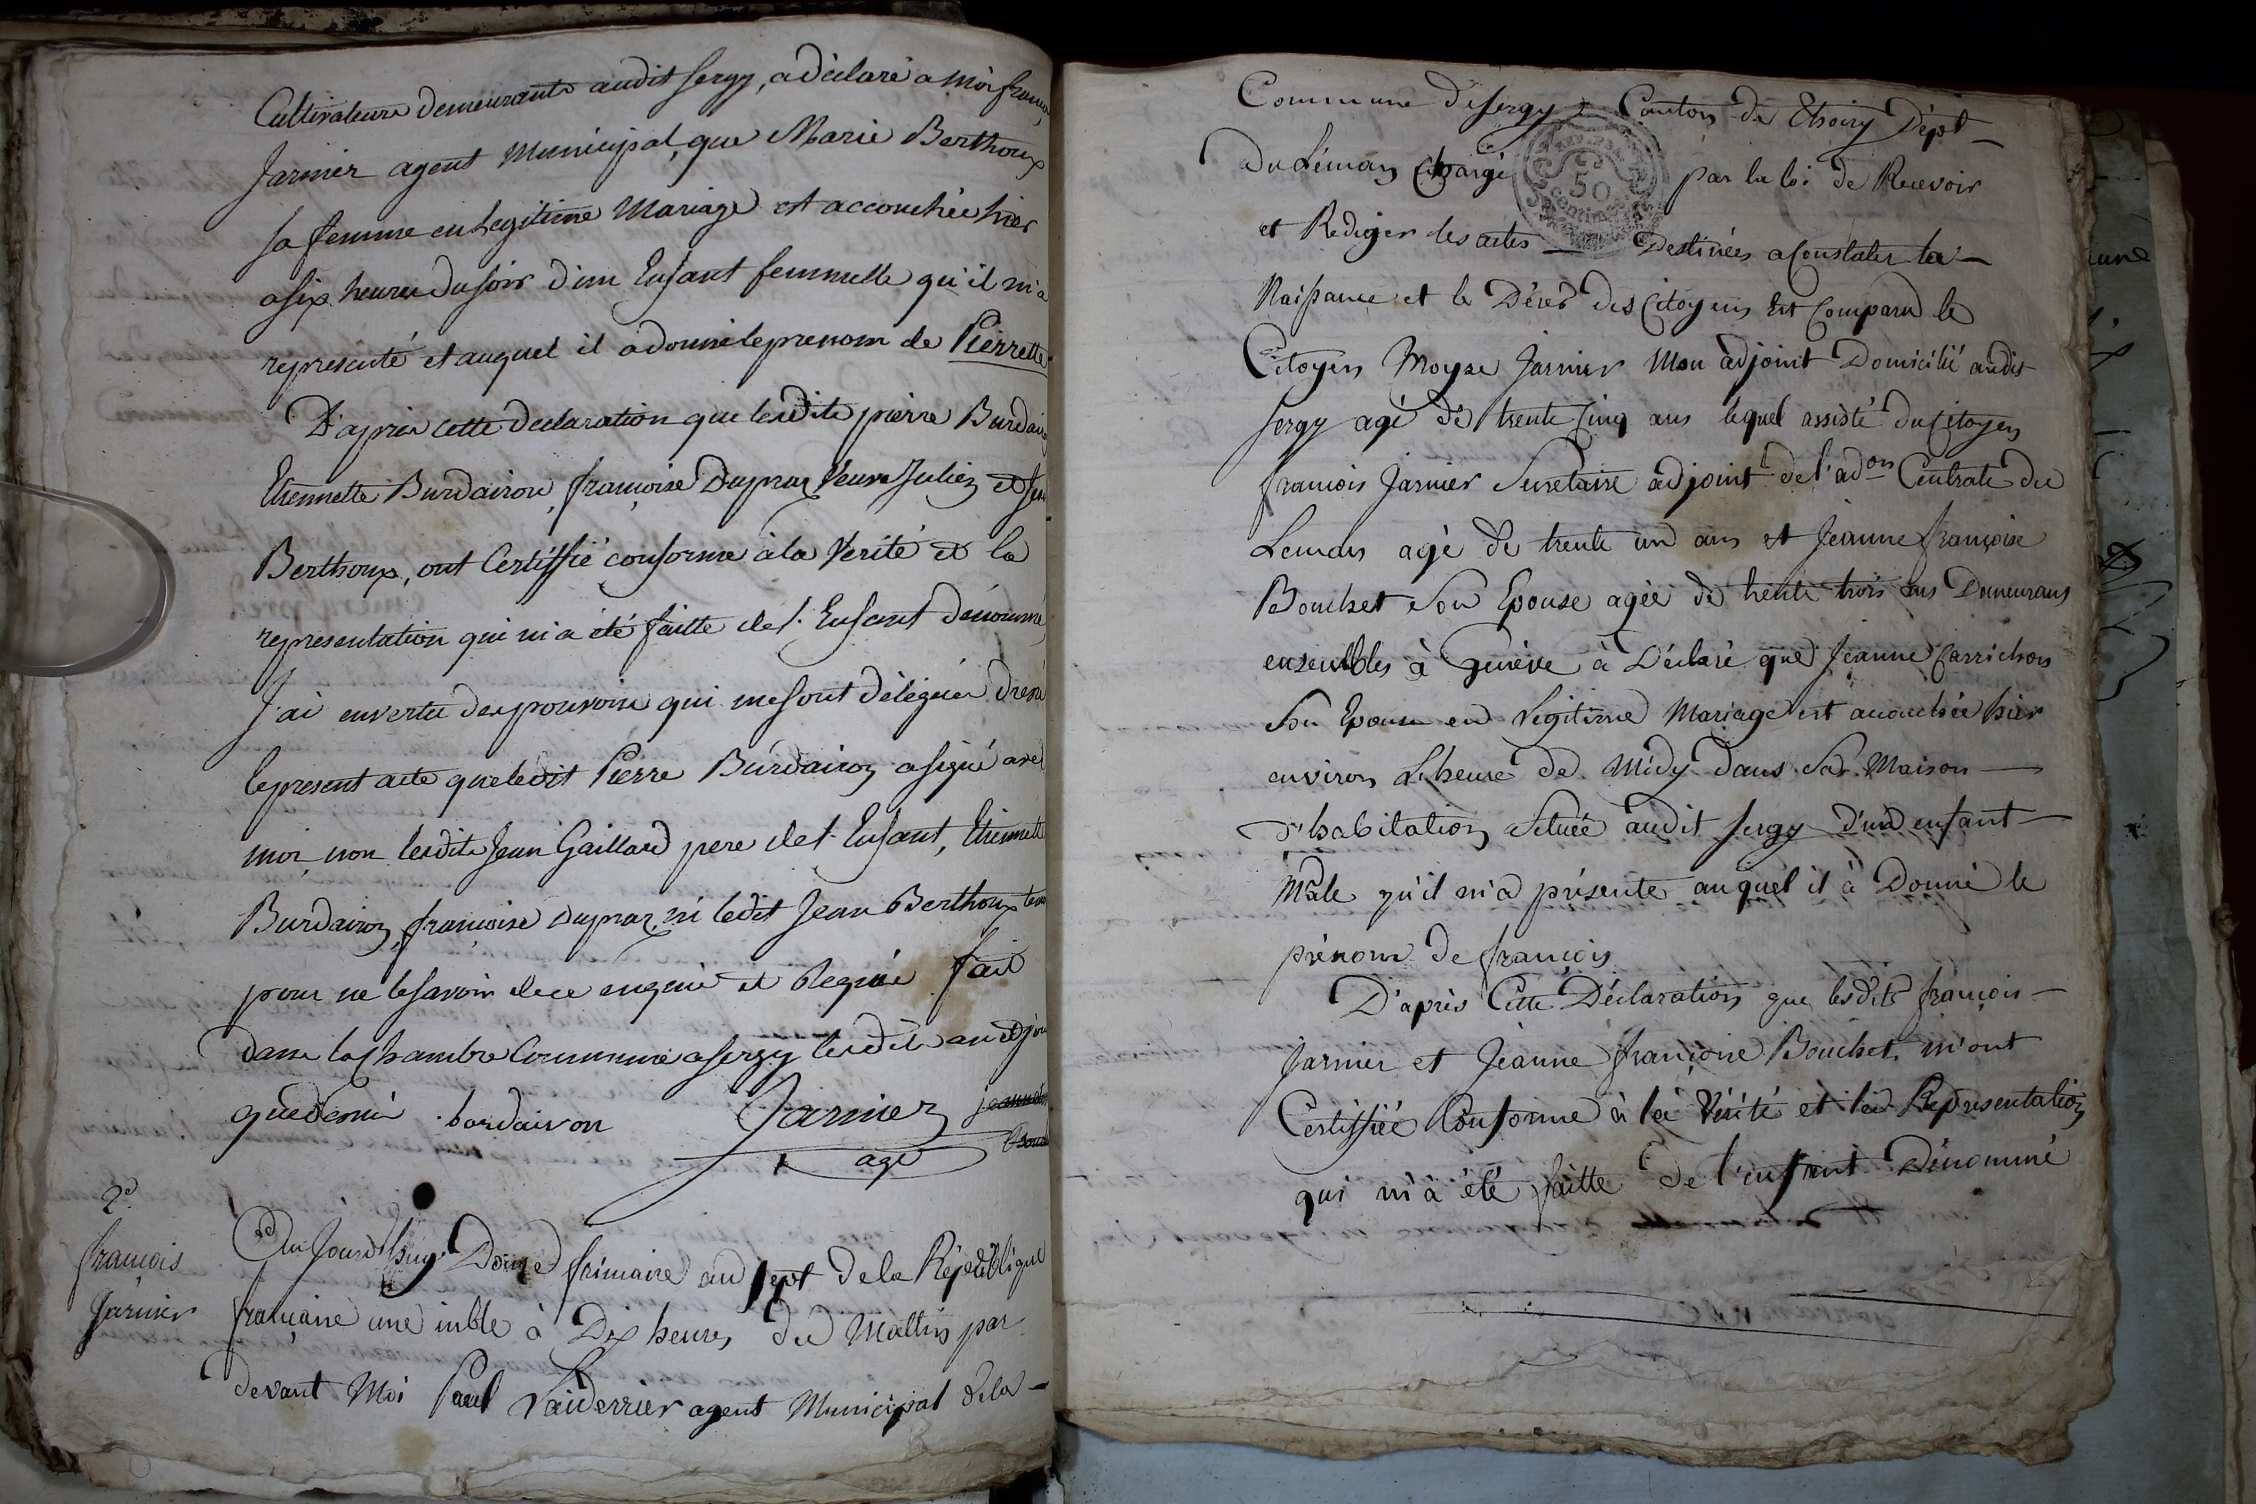 Cultivateure demeurante audit Sergy, a déclaré a moi françois
Jarnier agent Municipal, que Marie Berthoux
sa femme en Legitime Mariage est accouchée hier
a six heures du soir d'un Enfant femmelle qu'il m'a
representé et auquel il a donné le prenom de Pierrette
D'apriès cette declaration que lesdits pierre Burdairon
Etiennette Burdairon, françoise Dupraz Veuve Julien et Jean
Berthoux, ont Certiffié conforme à la Verité et la
representation qui m'a été faitte de l'Enfant dénommé,
J'ai en vertu des pouvoirs qui me sont délégués dressé
le present acte que ledit Pierre Burdairon a signé avec
moi, non lesdits Jean Gaillard pere de l'Enfant, Etiennette
Burdairon, françoise Dupraz, ni ledit Jean Berthoux
pour ne le savoir de ce enquis et Requis fait
dans la Chambre Commune a Sergy lesdits an et jour
que dessus . bordairon Jarnier
age
2e.
françois
Jarnier
Au Jourd'huy Douze frimaire an sept de la République
française une indble à Dix heures du Mattin par
devant Moi Paul Vaiderrier agent Municipal de la
Commune de Sergy Canton de Thoiry Dépt
du Léman Chargé par la loi de Recevoir
50 Centimes
et Rediger les actes Destinées a Constater la
Naissance et le Décès des Citoyens Est Comparu le
Citoyen Moyse Jarnier Mon adjoint Domicilié audit
Sergy agé de trente Cinq ans lequel assisté du Citoyen
françois Jarnier Secretaire adjoint de l'adon Centrale du
Leman agé de trente un ans et Jeanne françoise
Bouchet Son Epouse agée de trente trois ans Demeurans
ensembles à Genève à Déclaré que Jeanne Carrichon
Son Epouse en Légitime Mariage est accouchée hier
environ L'heure de Midy dans Sa Maison
d'habitation Située audit Sergy d'un enfant
Male qu'il m'a présenté auquel il à Donné le
prénom de françois
D'après Cette Déclaration que lesdits françois
Jarnier et Jeanne françoise Bouchet m'ont
Certiffiée Conforme à la Vérité et la Représentation
qui m'à été faitte de l'enfant Dénommé